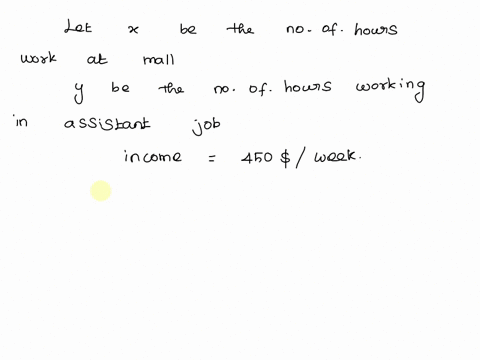 Let x be the no. of. hours
work at mall
y be the no. of. hours working
in assistant job
income = 450 $ / week.